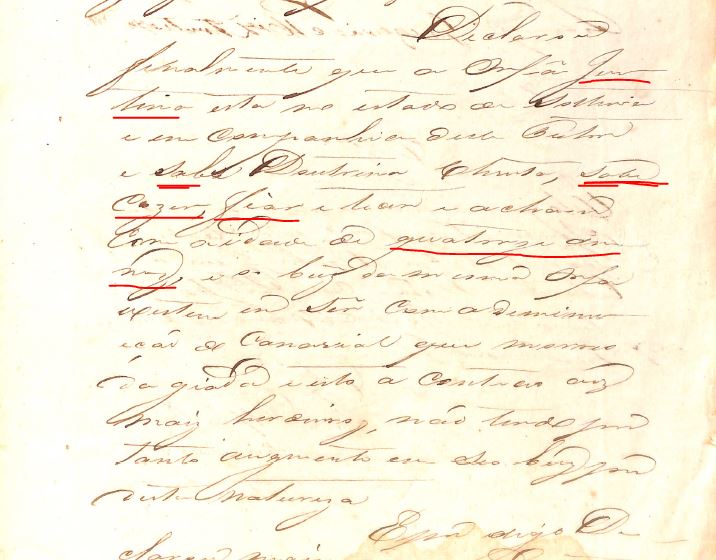 Declarou
finalmente que a Orfã Jus
tina está no estado de Solteira
e em Companhia delle Tutor
e Sabe Doutrina Christã, sabe
Cozer, fiar e tear e achase
Com aidade de quatorze an
nos, e os bens da mesma Orfã
existem em Ser Com ademinu
ição de Canavial que morreo
da giada e isto a Contece aos
mais herdeiros, não tendo por
tanto augmento em seos bens por
desta Natureza
digo De
clarou mais